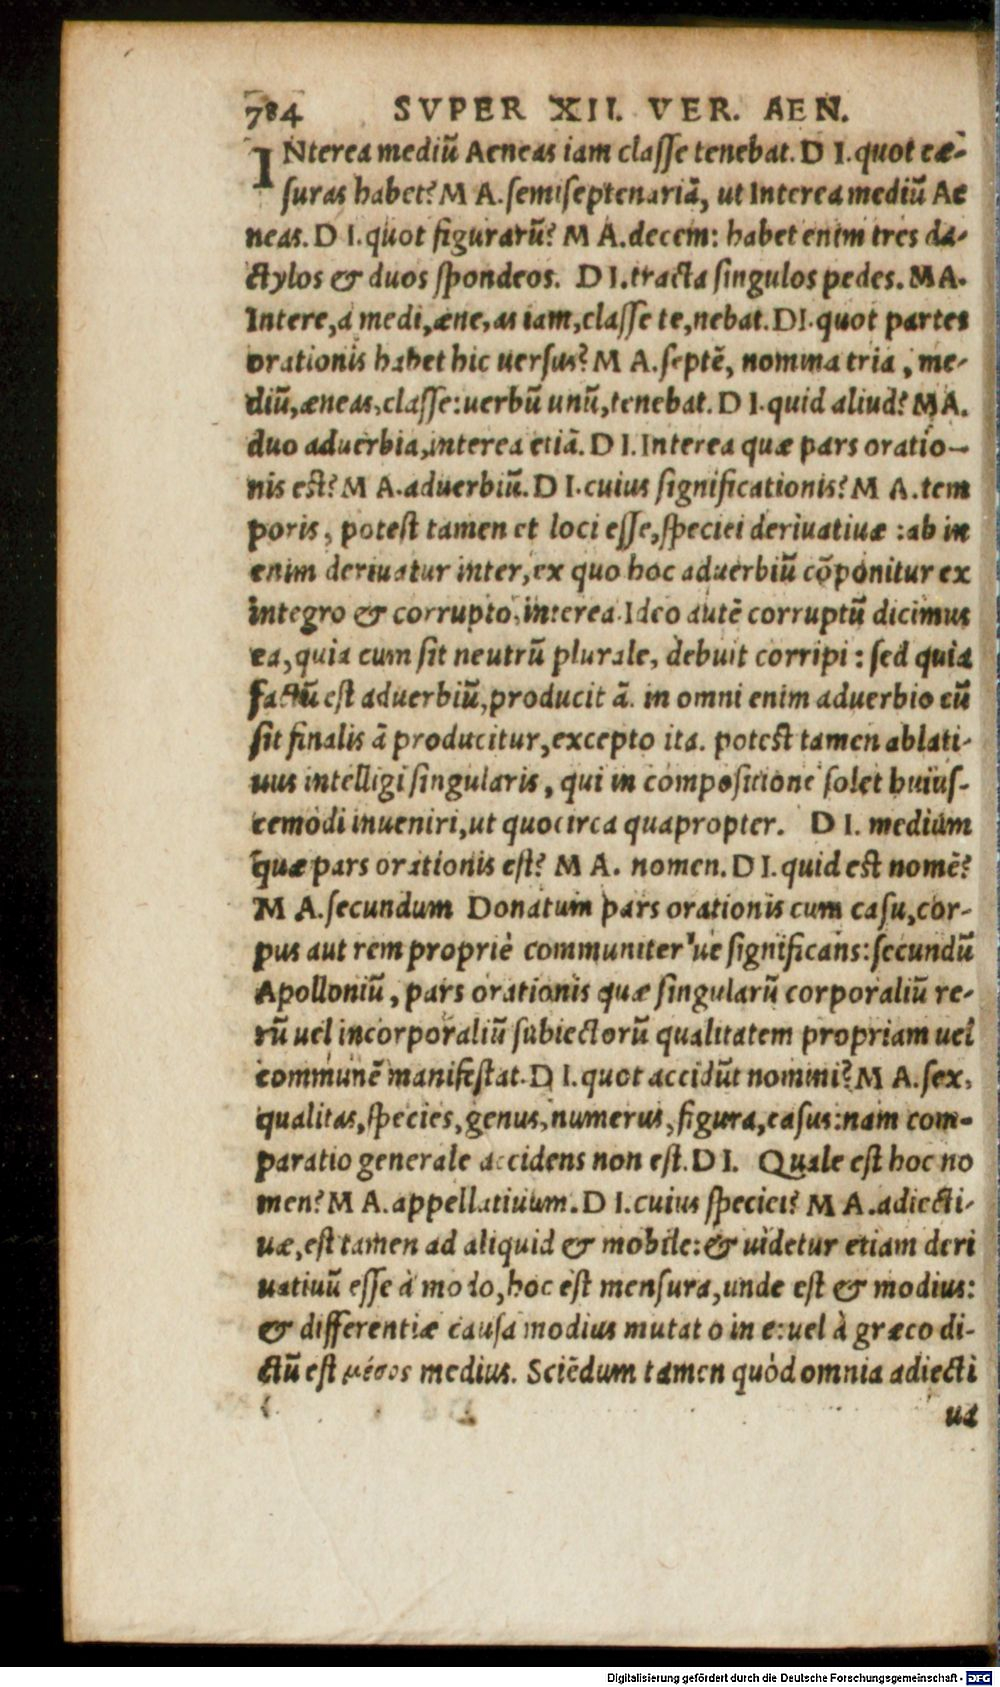 784 SVPER XII. VER. AEN.
INterea mediũ Aeneas iam classe tenebat. D I. quot cæ-
suras habet? M A. semiseptenariã, ut Interea mediũ Ae
neas. D I. quot figurarũ? M A. decem: habet enim tres da-
ctylos & duos spondeos. D I. tracta singulos pedes. M A.
Intere, a medi, æne, as iam, classe te, nebat. D I. quot partes
orationis habet hic uersus? M A. septẽ, nomina tria, me-
diũ, æneas, classe: uerbũ unũ, tenebat. D I. quid aliud? M A.
duo aduerbia, interea etiã. D I. Interea quæ pars oratio-
nis est? M A. aduerbiũ. D I. cuius significationis? M A. tem
poris, potest tamen et loci esse, speciei deriuatiuæ: ab in
enim deriuatur inter, ex quo hoc aduerbiũ cõponitur ex
integro & corrupto, interea. Ideo autẽ corruptũ dicimus
ea, quia cum sit neutrũ plurale, debuit corripi: sed quia
factũ est aduerbiũ, producit ã. in omni enim aduerbio cũ
sit finalis ã producitur, excepto ita. potest tamen ablati-
uus intelligi singularis, qui in compositione solet huius-
cemodi inueniri, ut quocirca quapropter. D I. medium
quæ pars orationis est? M A. nomen. D I. quid est nomẽ?
M A. secundum Donatum pars orationis cum casu, cor-
pus aut rem propriè communiter've significans: secundũ
Apolloniũ, pars orationis quæ singularũ corporaliũ re-
rũ uel incorporaliũ subiectorũ qualitatem propriam uel
communẽ manifestat. D I. quot accidũt nomini? M A. sex,
qualitas, species, genus, numerus, figura, casus: nam com-
paratio generale accidens non est. D I. Quale est hoc no
men? M A. appellatiuum. D I. cuius speciei? M A. adiecti-
uæ, est tamen ad aliquid & mobile: & uidetur etiam deri
uatiuũ esse à modo, hoc est mensura, unde est & modius:
& differentiæ causa modius mutat o in e: uel à græco di-
ctũ est μέσος medius. Sciẽdum tamen quòd omnia adiecti
ua
Digitalisierung gefördert durch die Deutsche Forschungsgemeinschaft - DFG